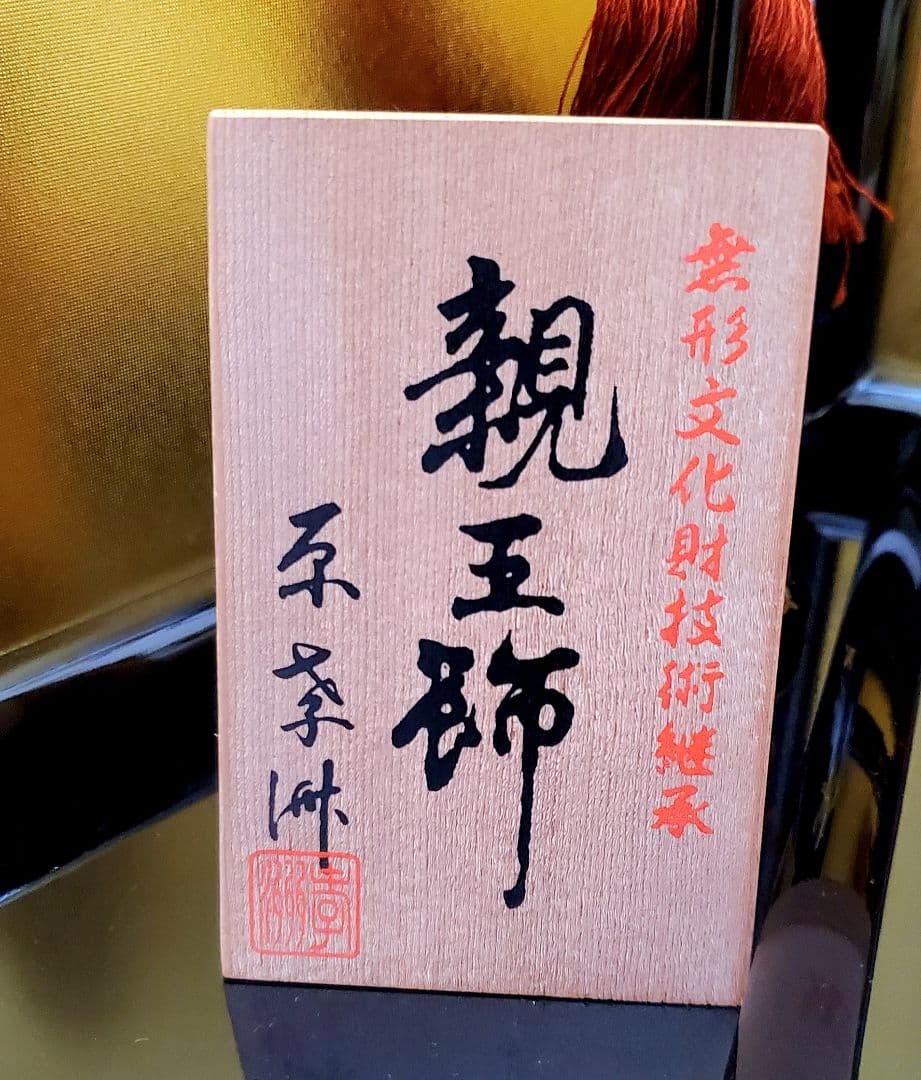 無形文化財技術継承
親王飾
原孝洲
孝洲